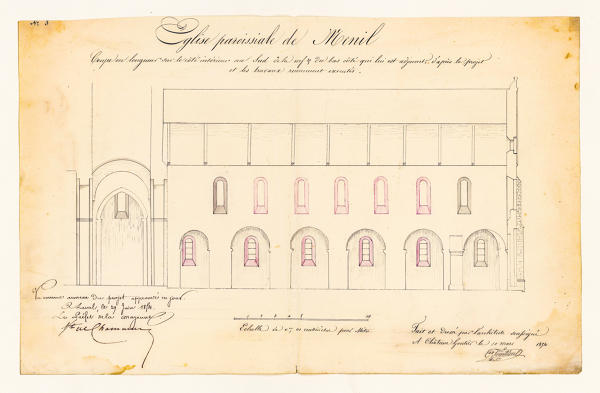 N° 3
Eglise paroissiale de Menil
Coupe en longueur sur le côté intérieur au Sud de la nef & du bas côté qui lui est adjacent, d'après le projet
et les travaux exécutés.
Vu comme annexe du projet approuvé en jour.
A Laval, le 29 Juin 1874
Le Préfet de la Mayenne
Echelle de 0,01 centimètre pour Mètre
Fait et dressé par l'architecte soussigné
A Château Gontier le 10 mars 1874